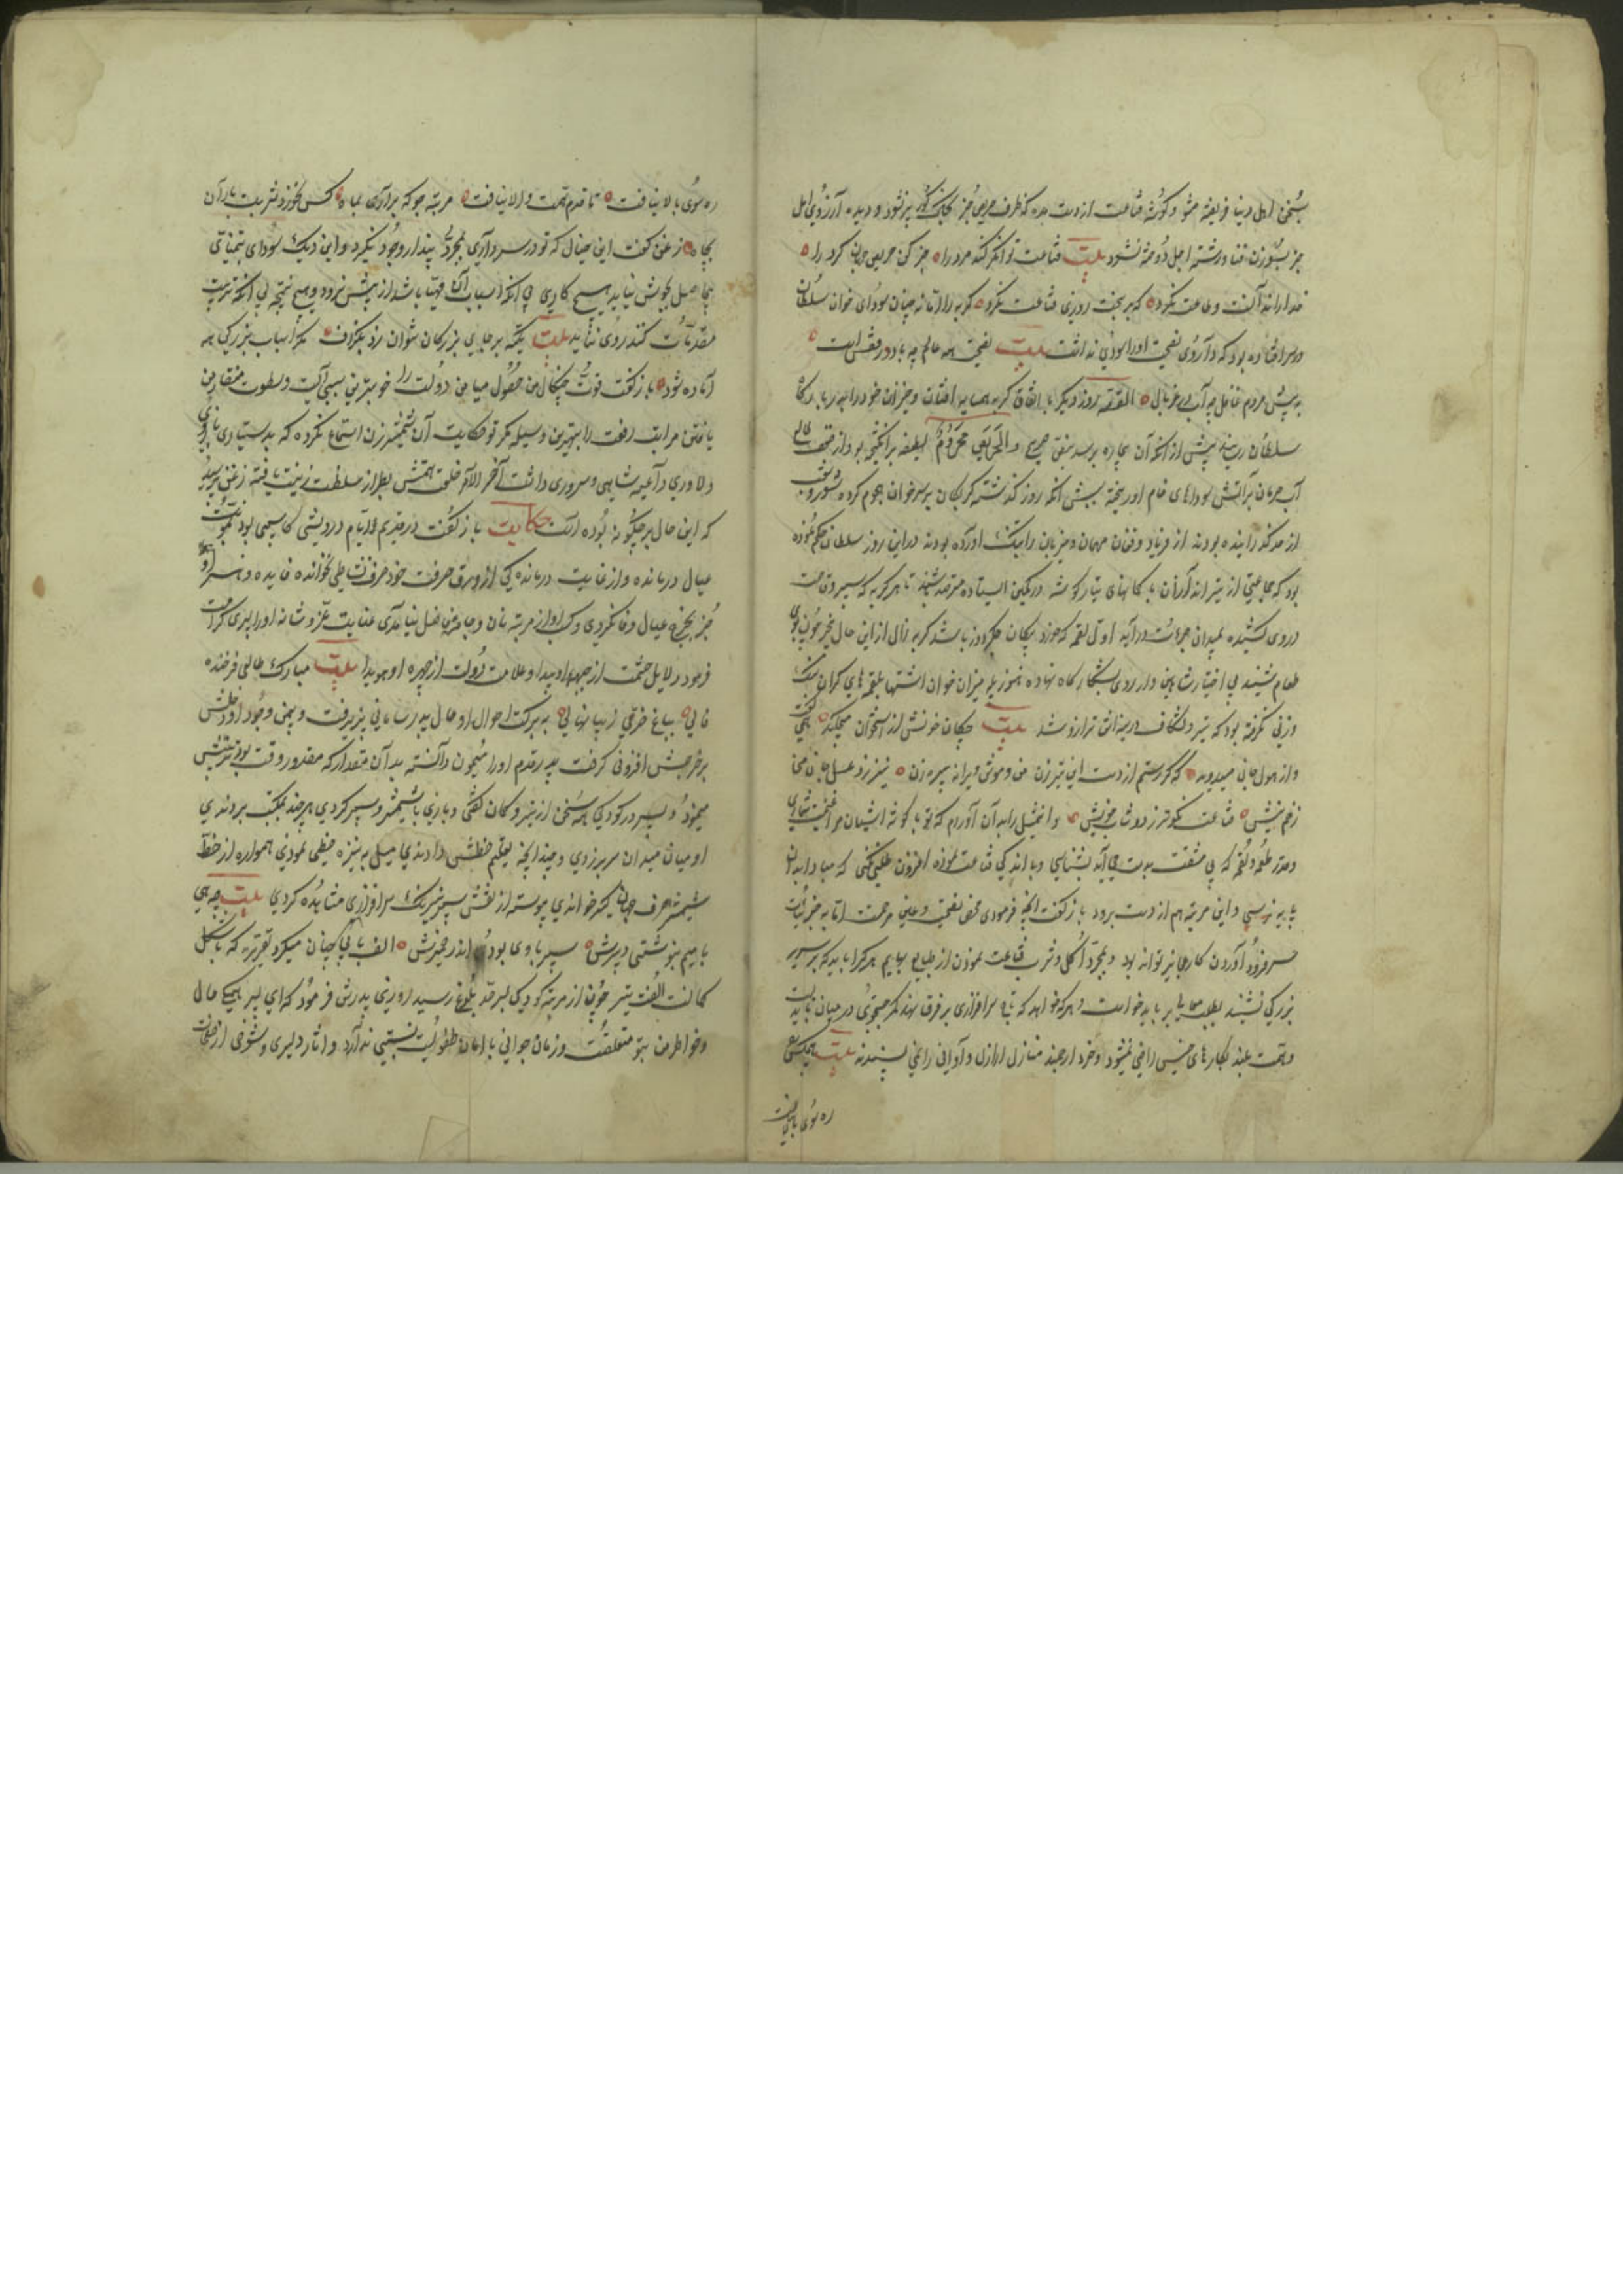 بسخن اهل دنیا فریفته مشو و گوشه قناعت از دست مده که ظرف حریص جز بخاک گور پر نشود و دیده آرزوی اهل
جز بسوزن فنا و رشته اجل دوخته نشود بیت قناعت توانگر کند مرد را خبر کن حریص جهان گرد را
خدا را ندانست و طاعت نکرد که بر بخت روزی قناعت نکرد گربه را از آنانه چنان سودای خوان سلطان
در سر افتاده بود که داروی نصیحت او را سودی نداشت بیت نصیحت همه عالم چو باد در قفس است
به پیش مردم غافل چو آب در غربال القصه روز دیگر باتفاق گربه همسایه افتان و خیزان خود را بدربار کاه
سلطان رسانید پیش از آنکه آن بیچاره برسد بمقتضی الحریص محروم لطیفه برانگیخته بود و از
آب حرمان بر آتش سوداهای خام او ریخته بسبب آنکه روز گذشته گربکان بر سر خوان هجوم کرده شور و شغب
از حد گذرانیده بودند از فریاد و فغان مهمان و میزبان را بتنگ آورده بودند در این روز سلطان حکم نموده
بود که جماعتی از تیراندازان با کمانهای تیار گوشه در کمین ایستاده مترصد باشند تا هر گربه که سپر وقاحت
در روی کشیده بمیدان جرأت درآید اول لقمه که خورد پیکان جگر دوز باشد گربه زال از این حال بیخبر چون بوی
طعام شنید بی اختیار شاهین وار روی بشکار گاه نهاد هنوز پله میزان خوان اشتها بلقمه های گران سنگ
وزنی نگرفته بود که تیر دلشکاف در سینه اش ترازو شد بیت چکان خونش از استخوان میچکید همی گفت
و از هول جان میدوید که گر رستم از دست این تیر زن من و موش ویرانه پیر زن نیرزد عسل جان من
زخم نیش قناعت نکوتر بدوشاب خویش و این مثل را بدان آوردم که تو نیز گوشه آشیان مرا غنیمت شماری
و قدر طعمه و لقمه که بی مشقت بدست می آید بشناسی و باندکی قناعت نموده افزون طلبی نکنی که مبادا بدان
پایه نرسی و این مرتبه هم از دست برود باز گفت آنچه فرمودی محض نصیحت و عین مرحمت اما به جزئیات
سر فرود آوردن کار عاجزان تواند بود و بمجرد اکل و شرب قناعت نمودن از طبایع بهایم هر کرا باید که بر سریر
بزرگی نشیند بطلب معالی امور باید خواست و هر که خواهد که تاج سرافرازی بر فرق نهد کمر جستجوی در میان باید
و همت بلند بکارهای خسیس راضی نمیشود و خرد ارجمند منازل ارذل و ادانی را نمی پسندد بیت هیچ کسی
ره سوی بالا نیافت
ره سوی بالا نیافت تا قدم همت والا نیافت مرتبه جو که بر آری بماه کس نخورد شربت باران
بچاه زغن گفت این خیال که تو در سر داری بمجرد پندار وجود نگیرد و این دیگ سودای تمنای
بی حاصل بجوش نیاید هیچ کاری بی آنکه اسباب آن مهیا باشد از پیش نرود و هیچ نتیجه بی آنکه ترتیب
مقدمات کنند روی ننماید بیت تکیه بر جای بزرگان نتوان زد بگزاف مگر اسباب بزرگی همه
آماده شود باز گفت قوت چنگال من حصول میامن دولت را خوبترین سببی است و سطوت منقار من
یافتن مراتب رفعت را بهترین وسیله مگر تو حکایت آن شمشیر زن استماع نکرده که بدستیاری بازوی
دلاوری داعیه شاهی و سروری داشت آخر الامر خلعت همتش بطراز سلطنت زینت یافته زغن پرسید
که این حال بر چگونه بوده است حکایت باز گفت در قدیم الایام درویشی کاسبی بود بمؤنت
عیال درمانده و از غایت درماندگی از ورق حرفت خود حرف نشاطی نخوانده فایده و هنر او
جز بخرج عیال وفا نکردی و کسب او از مرتبه نان و جامه فاضل نیامدی عنایت عز و شانه او را پسری کرامت
فرمود دلایل حشمت از جبهه او پیدا و علامت دولت از چهره او هویدا بیت مبارک طالعی فرخنده
فالی بباغ خرمی زیبا نهالی به برکت احوال او حال پدر سامانی پذیرفت و بیمن وجود او دخلش
بر خرجش افزونی گرفت پدر قدم او را میمون دانسته بدان مقدار که مقدور وقت بود تربیتش
مینمود و پسر در کودکی همه سخن از تیر و کمان گفتی و بازی با شمشیر و سپر کردی هر چند بمکتب بردندی
او میان میدان سر برزدی و چندانچه بتعلیم خطش دادندی میل به نیزه خطی نمودی همواره از خط
شمشیر حرف جهانگیر خواندی پیوسته از نقش سپر نیرنگ سرافرازی مشاهده کردی بیت چو همی
با میم بنوشتی دبیرش سپر با وی بود اندر ضمیرش الف با بی چنان میکرد تقریر که باشکل
کمانست الف تیر چون از مرتبه کودکی بسر حد بلوغ رسید روزی پدرش فرمود که ای پسر همگی حال
و خواطر من بتو متعلقست و زمان جوانی با ایام طفولیت نسبتی ندارد و آثار دلیری و شوخی از صفحات